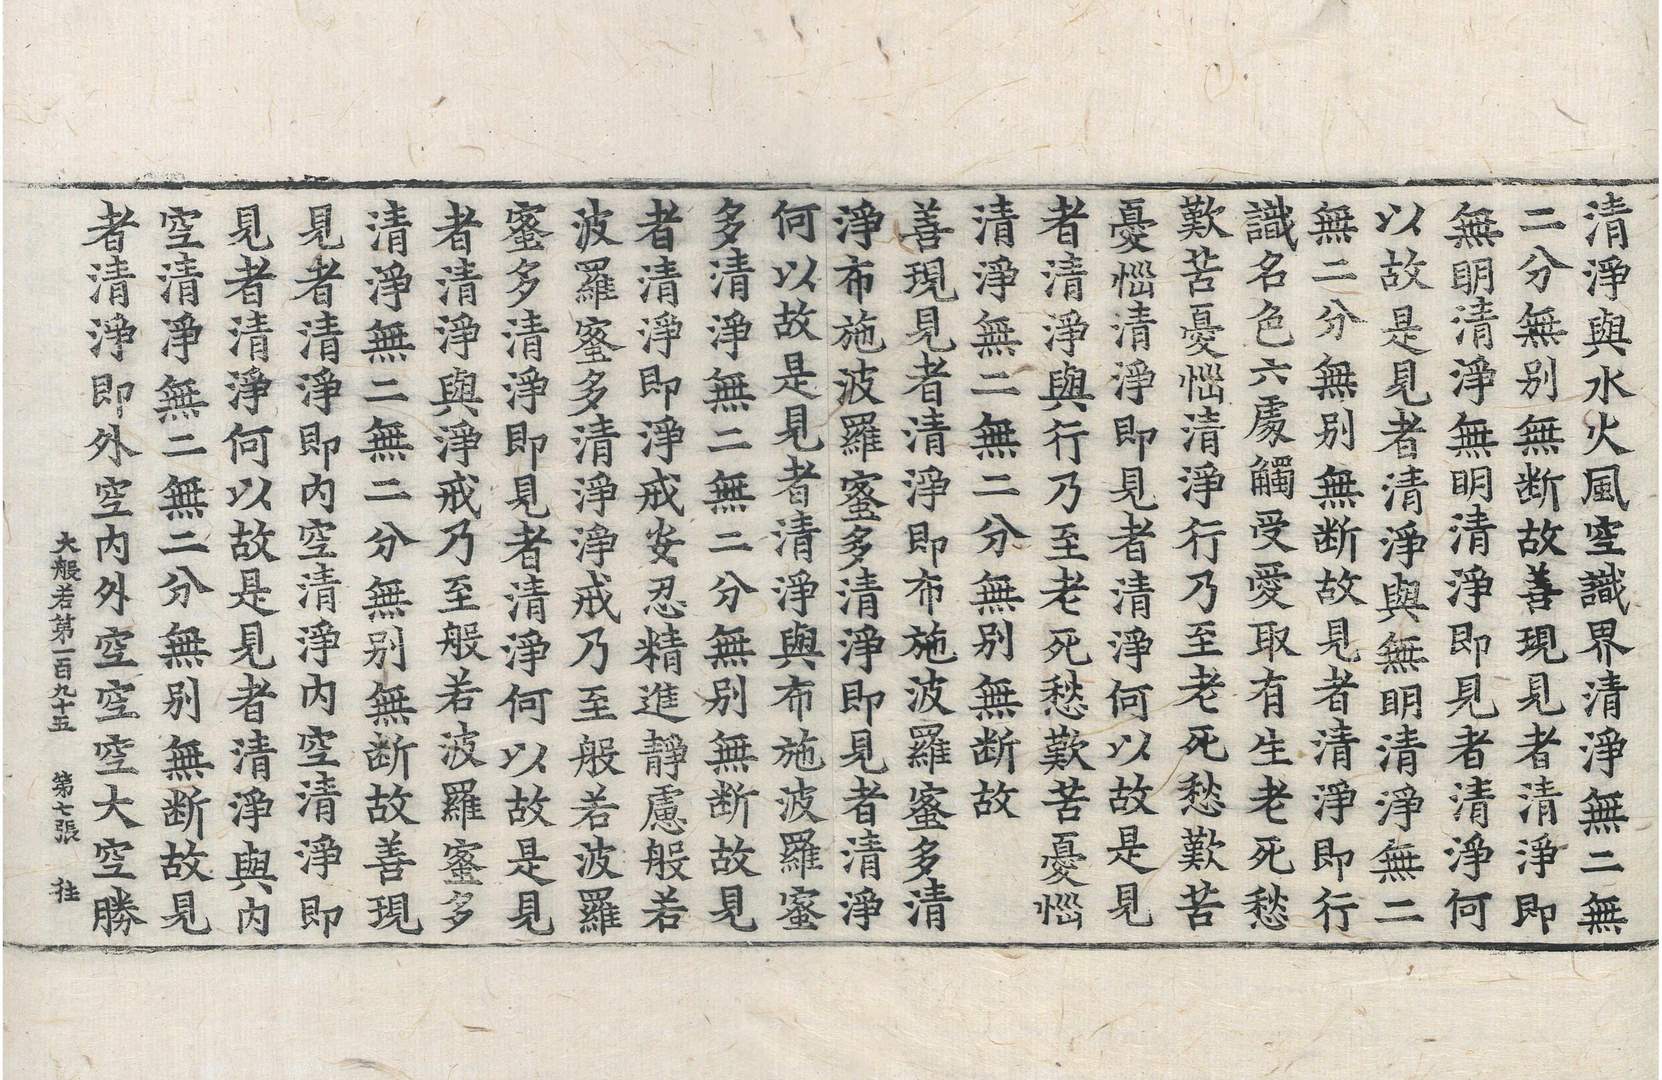 清淨與水火風空識界清淨無二無
二分無别無断故善現見者清淨即
無明清淨無明清淨即見者清淨何
以故是見者清淨與無明清淨無二
無二分無别無断故見者清淨即行
識名色六處觸受愛取有生老死愁
歎苦憂惱清淨行乃至老死愁歎苦
憂惱清淨即見者清淨何以故是見
者清淨與行乃至老死愁歎苦憂惱
清淨無二無二分無别無断故
善現見者清淨即布施波羅蜜多清
淨布施波羅蜜多清淨即見者清淨
何以故是見者清淨與布施波羅蜜
多清淨無二無二分無别無断故見
者清淨即淨戒安忍精進靜慮般若
波羅蜜多清淨淨戒乃至般若波羅
蜜多清淨即見者清淨何以故是見
者清淨與淨戒乃至般若波羅蜜多
清淨無二無二分無别無断故善現
見者清淨即内空清淨内空清淨即
見者清淨何以故是見者清淨與内
空清淨無二無二分無别無断故見
者清淨即外空内外空空空大空勝
大般若第一百九十五 第七張 往